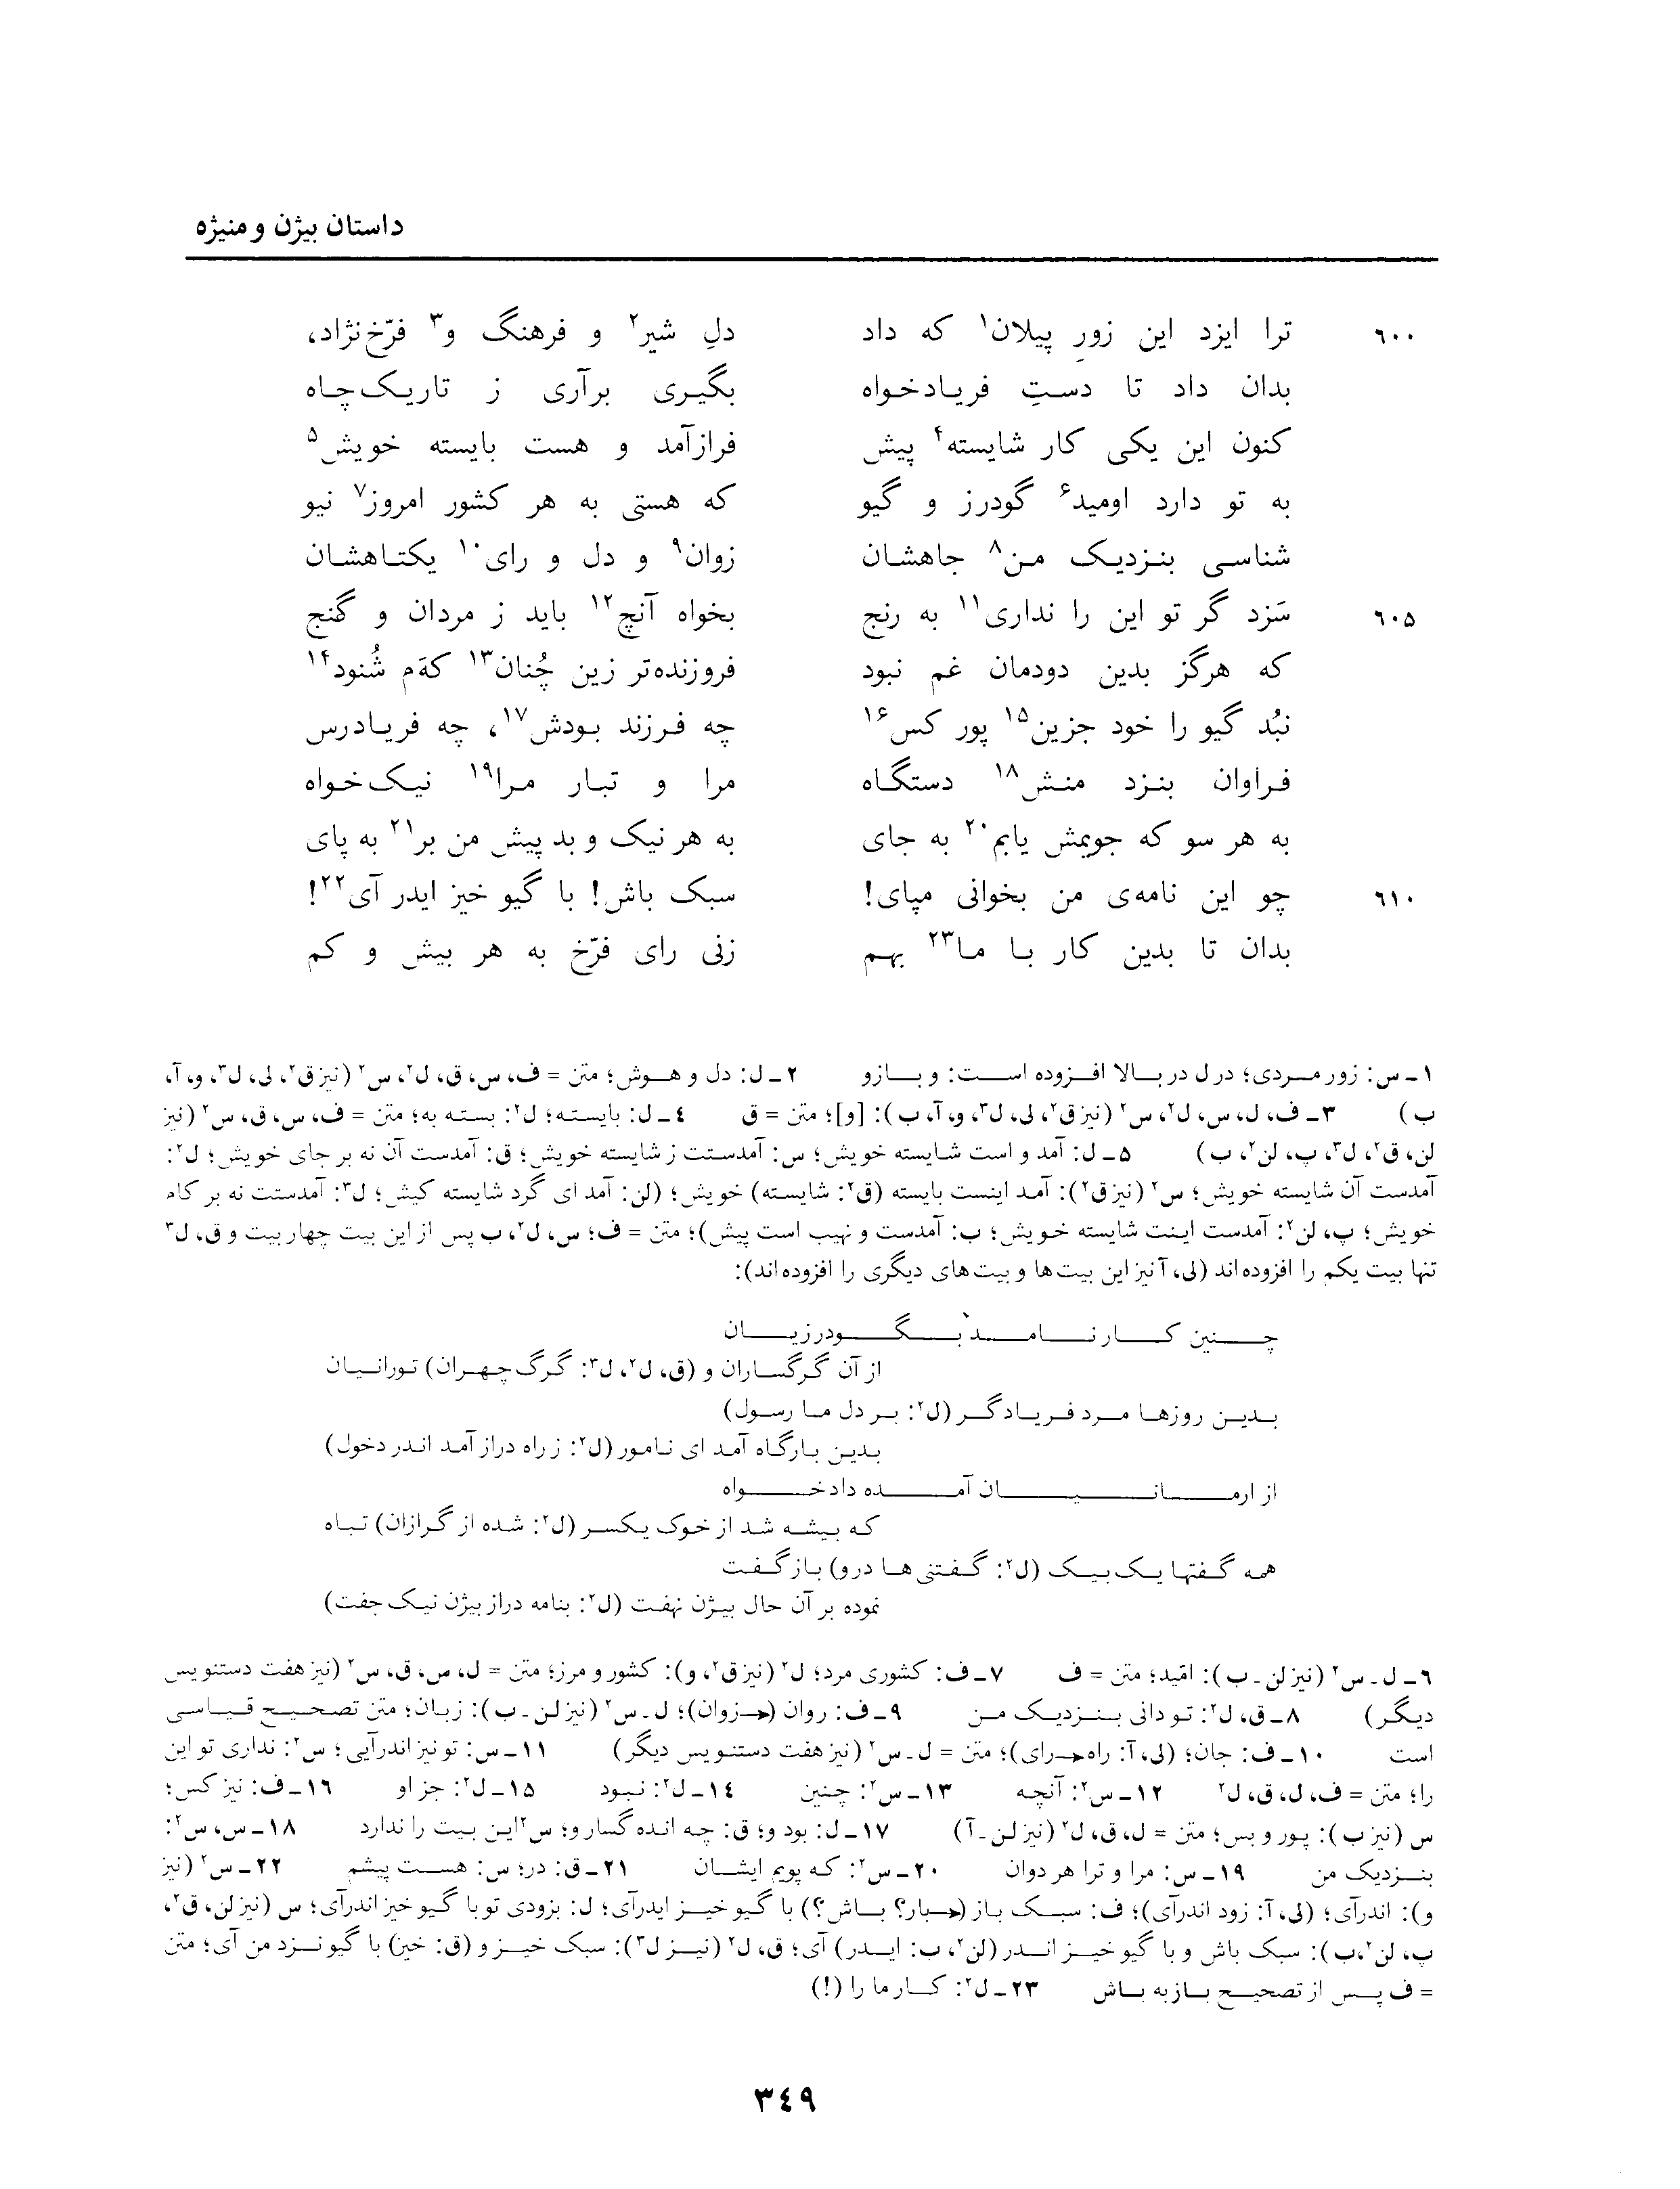 داستان بیژن و منیژه
٦٠٠ ترا ایزد این زورِ پیلان۱ که داد دلِ شیر۲ و فرهنگ و۳ فرّخ‌نژاد،
بدان داد تا دستِ فریادخواه بگیری برآری ز تاریک‌چاه
کنون این یکی کار شایسته۴ پیش فرازآمد و هست بایسته خویش۵
به تو دارد اومید۶ گودرز و گیو که هستی به هر کشور امروز۷ نیو
شناسی بنزدیک من۸ جاهشان زوان۹ و دل و رای۱۰ یکتاهشان
٦٠٥ سَزد گر تو این را نداری۱۱ به رنج بخواه آنچ۱۲ باید ز مردان و گنج
که هرگز بدین دودمان غم نبود فروزنده‌تر زین چُنان۱۳ کهَ‌م شُنود۱۴
نبُد گیو را خود جزین۱۵ پور کس۱۶ چه فرزند بودش۱۷، چه فریادرس
فراوان بنزد منش۱۸ دستگاه مرا و تبار مرا۱۹ نیک‌خواه
به هر سو که جویمش یابم۲۰ به جای به هر نیک و بد پیش من بر۲۱ به پای
٦١٠ چو این نامه‌ی من بخوانی مپای! سبک باش! با گیو خیز ایدر آی۲۲!
بدان تا بدین کار با ما۲۳ بهم زنی رای فرّخ به هر بیش و کم
۱ـ س: زور مردی؛ در ل در بالا افزوده است: و بازو ۲ـ ل: دل و هوش؛ متن = ف، س، ق، ل۲، س۲ (نیز ق۲، لی، ل۳، و، آ،
ب) ۳ـ ف، ل، س، ل۲، س۲ (نیز ق۲، لی، ل۳، و، آ، ب): [و]؛ متن = ق ٤ـ ل: بایسته؛ ل۲: بسته به؛ متن = ف، س، ق، س۲ (نیز
لن، ق۲، ل۳، پ، لن۲، ب) ۵ـ ل: آمد و است شایسته خویش؛ س: آمدستت ز شایسته خویش؛ ق: آمدست آن نه بر جای خویش؛ ل۲:
آمدست آن شایسته خویش؛ س۲ (نیز ق۲): آمد اینست بایسته (ق۲: شایسته) خویش؛ (لن: آمد ای گرد شایسته کیش؛ ل۳: آمدستت نه بر کام
خویش؛ پ، لن۲: آمدست اینت شایسته خویش؛ ب: آمدست و نهیب است پیش)؛ متن = ف؛ س، ل۲، ب پس از این بیت چهار بیت و ق، ل۳
تنها بیت یکم را افزوده‌اند (لی، آ نیز این بیت‌ها و بیت‌های دیگری را افزوده‌اند):
چنین کار نامد بگودرزیان
از آن گرگساران و (ق، ل۲، ل۳: گرگ‌چهران) تورانیان
بدین روزها مرد فریادگر (ل۲: بر دل ما رسول)
بدین بارگاه آمد ای نامور (ل۲: ز راه دراز آمد اندر دخول)
از ارمانیان آمده دادخواه
که بیشه شد از خوک یکسر (ل۲: شده از گرازان) تباه
همه گفتها یک‌بیک (ل۲: گفتنی‌ها درو) بازگفت
نموده بر آن حال بیژن نهفت (ل۲: بنامه دراز بیژن نیک جفت)
۶ـ ل ـ س۲ (نیز لن ـ ب): امّید؛ متن = ف ۷ـ ف: کشوری مرد؛ ل۲ (نیز ق۲، و): کشور و مرز؛ متن = ل، س، ق، س۲ (نیز هفت دستنویس
دیگر) ۸ـ ق، ل۲: تو دانی بنزدیک من ۹ـ ف: روان (←زوان)؛ ل ـ س۲ (نیز لن ـ ب): زبان؛ متن تصحیح قیاسی
است ۱۰ـ ف: جان؛ (لی، آ: راه←رای)؛ متن = ل ـ س۲ (نیز هفت دستنویس دیگر) ۱۱ـ س: تو نیز اندرآیی؛ س۲: نداری تو این
را؛ متن = ف، ل، ق، ل۲ ۱۲ـ س۲: آنچه ۱۳ـ س۲: چنین ۱٤ـ ل۲: نبود ۱۵ـ ل۲: جز او ۱۶ـ ف: نیز کس؛
س (نیز ب): پور و بس؛ متن = ل، ق، ل۲ (نیز لن ـ آ) ۱۷ـ ل: بود و؛ ق: چه انده گسار و؛ س۲ این بیت را ندارد ۱۸ـ س، س۲:
بنزدیک من ۱۹ـ س: مرا و ترا هر دوان ۲۰ـ س۲: که پویم ایشان ۲۱ـ ق: در؛ س: هست پیشم ۲۲ـ س۲ (نیز
و): اندرآی؛ (لی، آ: زود اندرآی)؛ ف: سبک باز (←بار؟ باش؟) با گیو خیز ایدرآی؛ ل: بزودی تو با گیو خیز اندرآی؛ س (نیز لن، ق۲،
پ، لن۲، ب): سبک باش و با گیو خیز اندر (لن۲، ب: ایدر) آی؛ ق، ل۲ (نیز ل۳): سبک خیز و (ق: خیز) با گیو نزد من آی؛ متن
= ف پس از تصحیح باز به باش ۲۳ـ ل۲: کار ما را (!)
٣٤٩